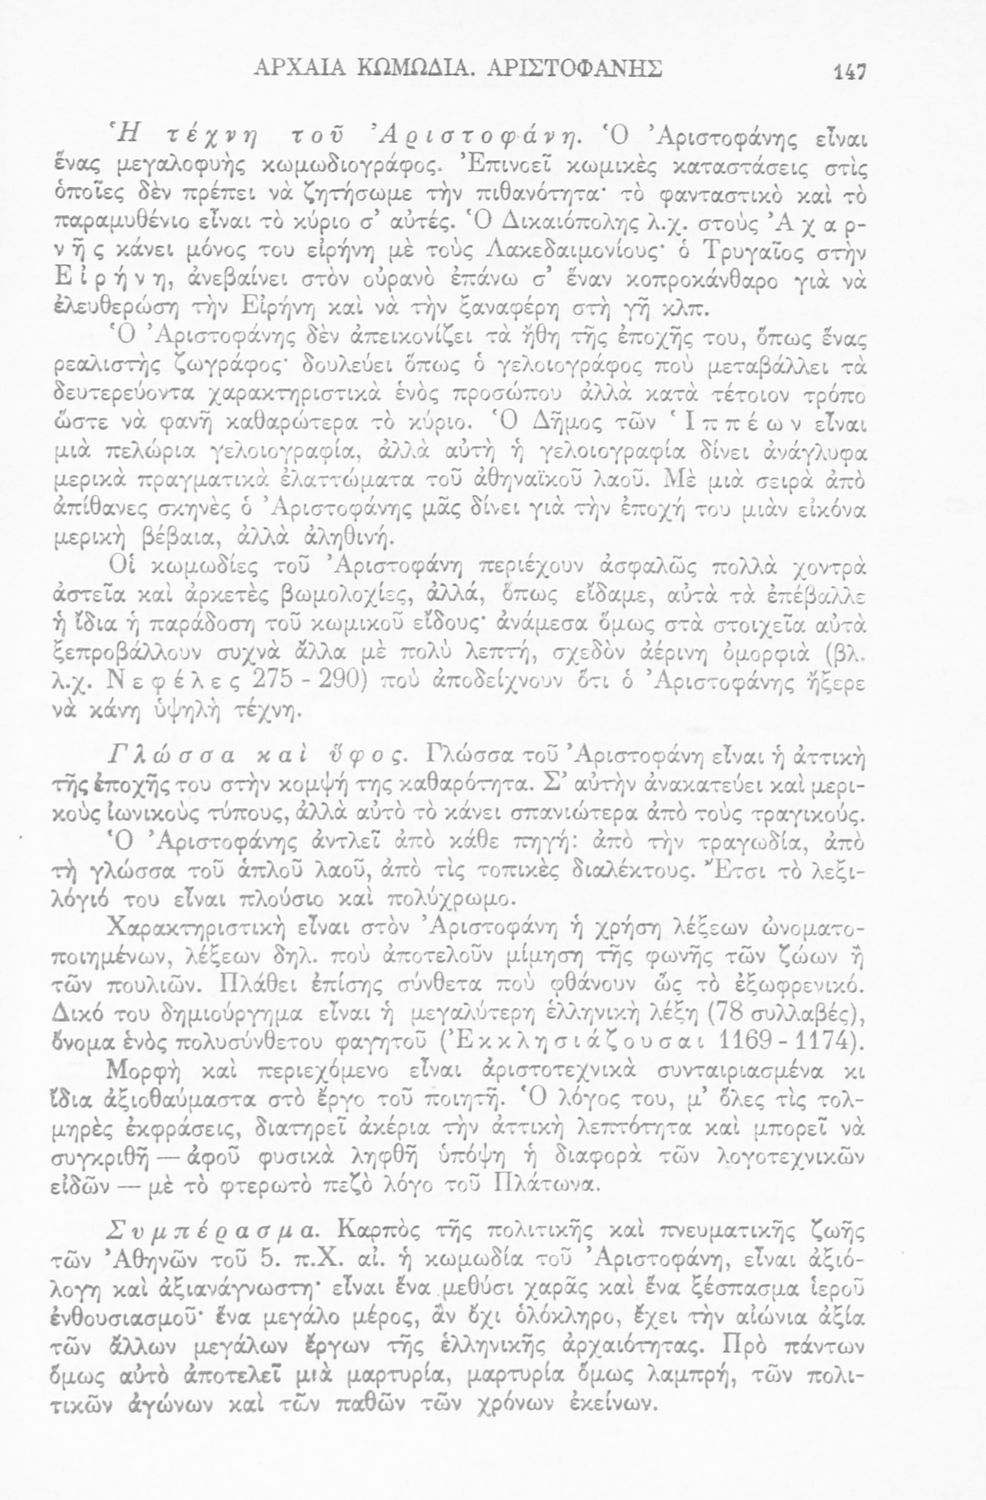 ΑΡΧΑΙΑ ΚΩΜΩΔΙΑ. ΑΡΙΣΤΟΦΑΝΗΣ 147
Ἡ τέχνη τοῦ Ἀριστοφάνη. Ὁ Ἀριστοφάνης εἶναι
ἕνας μεγαλοφυὴς κωμωδιογράφος. Ἐπινοεῖ κωμικὲς καταστάσεις στὶς
ὁποῖες δὲν πρέπει νὰ ζητήσωμε τὴν πιθανότητα· τὸ φανταστικὸ καὶ τὸ
παραμυθένιο εἶναι τὸ κύριο σ’ αὐτές. Ὁ Δικαιόπολης λ.χ. στοὺς Ἀχαρ-
νῆς κάνει μόνος του εἰρήνη μὲ τοὺς Λακεδαιμονίους· ὁ Τρυγαῖος στὴν
Εἰρήνη, ἀνεβαίνει στὸν οὐρανὸ ἐπάνω σ’ ἕναν κοπροκάνθαρο γιὰ νὰ
ἐλευθερώση τὴν Εἰρήνη καὶ νὰ τὴν ξαναφέρη στὴ γῆ κλπ.
Ὁ Ἀριστοφάνης δὲν ἀπεικονίζει τὰ ἤθη τῆς ἐποχῆς του, ὅπως ἕνας
ρεαλιστὴς ζωγράφος· δουλεύει ὅπως ὁ γελοιογράφος ποὺ μεταβάλλει τὰ
δευτερεύοντα χαρακτηριστικὰ ἑνὸς προσώπου ἀλλὰ κατὰ τέτοιον τρόπο
ὥστε νὰ φανῆ καθαρώτερα τὸ κύριο. Ὁ Δῆμος τῶν Ἱππέων εἶναι
μιὰ πελώρια γελοιογραφία, ἀλλὰ αὐτὴ ἡ γελοιογραφία δίνει ἀνάγλυφα
μερικὰ πραγματικὰ ἐλαττώματα τοῦ ἀθηναϊκοῦ λαοῦ. Μὲ μιὰ σειρὰ ἀπὸ
ἀπίθανες σκηνὲς ὁ Ἀριστοφάνης μᾶς δίνει γιὰ τὴν ἐποχή του μιὰν εἰκόνα
μερικὴ βέβαια, ἀλλὰ ἀληθινή.
Οἱ κωμωδίες τοῦ Ἀριστοφάνη περιέχουν ἀσφαλῶς πολλὰ χοντρὰ
ἀστεῖα καὶ ἀρκετὲς βωμολοχίες, ἀλλά, ὅπως εἴδαμε, αὐτὰ τὰ ἐπέβαλλε
ἡ ἴδια ἡ παράδοση τοῦ κωμικοῦ εἴδους· ἀνάμεσα ὅμως στὰ στοιχεῖα αὐτὰ
ξεπροβάλλουν συχνὰ ἄλλα μὲ πολὺ λεπτή, σχεδὸν ἀέρινη ὀμορφιὰ (βλ.
λ.χ. Νεφέλες 275 - 290) ποὺ ἀποδείχνουν ὅτι ὁ Ἀριστοφάνης ἤξερε
νὰ κάνη ὑψηλὴ τέχνη.
Γλώσσα καὶ ὕφος. Γλώσσα τοῦ Ἀριστοφάνη εἶναι ἡ ἀττικὴ
τῆς ἐποχῆς του στὴν κομψή της καθαρότητα. Σ’ αὐτὴν ἀνακατεύει καὶ μερι-
κοὺς ἰωνικοὺς τύπους, ἀλλὰ αὐτὸ τὸ κάνει σπανιώτερα ἀπὸ τοὺς τραγικούς.
Ὁ Ἀριστοφάνης ἀντλεῖ ἀπὸ κάθε πηγή: ἀπὸ τὴν τραγωδία, ἀπὸ
τὴ γλώσσα τοῦ ἁπλοῦ λαοῦ, ἀπὸ τὶς τοπικὲς διαλέκτους. Ἔτσι τὸ λεξι-
λόγιό του εἶναι πλούσιο καὶ πολύχρωμο.
Χαρακτηριστικὴ εἶναι στὸν Ἀριστοφάνη ἡ χρήση λέξεων ὠνοματο-
ποιημένων, λέξεων δηλ. ποὺ ἀποτελοῦν μίμηση τῆς φωνῆς τῶν ζώων ἢ
τῶν πουλιῶν. Πλάθει ἐπίσης σύνθετα ποὺ φθάνουν ὣς τὸ ἐξωφρενικό.
Δικό του δημιούργημα εἶναι ἡ μεγαλύτερη ἑλληνικὴ λέξη (78 συλλαβές),
ὄνομα ἑνὸς πολυσύνθετου φαγητοῦ (Ἐκκλησιάζουσαι 1169 - 1174).
Μορφὴ καὶ περιεχόμενο εἶναι ἀριστοτεχνικὰ συνταιριασμένα κι
ἴδια ἀξιοθαύμαστα στὸ ἔργο τοῦ ποιητῆ. Ὁ λόγος του, μ’ ὅλες τὶς τολ-
μηρὲς ἐκφράσεις, διατηρεῖ ἀκέρια τὴν ἀττικὴ λεπτότητα καὶ μπορεῖ νὰ
συγκριθῆ — ἀφοῦ φυσικὰ ληφθῆ ὑπόψη ἡ διαφορὰ τῶν λογοτεχνικῶν
εἰδῶν — μὲ τὸ φτερωτὸ πεζὸ λόγο τοῦ Πλάτωνα.
Συμπέρασμα. Καρπὸς τῆς πολιτικῆς καὶ πνευματικῆς ζωῆς
τῶν Ἀθηνῶν τοῦ 5. π.Χ. αἰ. ἡ κωμωδία τοῦ Ἀριστοφάνη, εἶναι ἀξιό-
λογη καὶ ἀξιανάγνωστη· εἶναι ἕνα μεθύσι χαρᾶς καὶ ἕνα ξέσπασμα ἱεροῦ
ἐνθουσιασμοῦ· ἕνα μεγάλο μέρος, ἂν ὄχι ὁλόκληρο, ἔχει τὴν αἰώνια ἀξία
τῶν ἄλλων μεγάλων ἔργων τῆς ἑλληνικῆς ἀρχαιότητας. Πρὸ πάντων
ὅμως αὐτὸ ἀποτελεῖ μιὰ μαρτυρία, μαρτυρία ὅμως λαμπρή, τῶν πολι-
τικῶν ἀγώνων καὶ τῶν παθῶν τῶν χρόνων ἐκείνων.